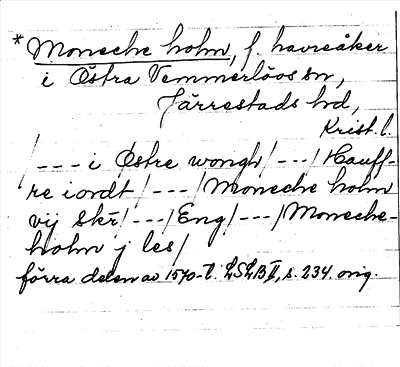 * Moneche holm, f. havreåker
i Östra Vemmerlövs sn,
Järrestads hd,
Krist. l.
/--- i Østre wongh/---/Hauff-
re iordt/---/Moneche holm
vij skr̄/---/Eng/---/Moneche-
holm j les/
förra delen av 1570-t. LSLB II, s. 234. orig.